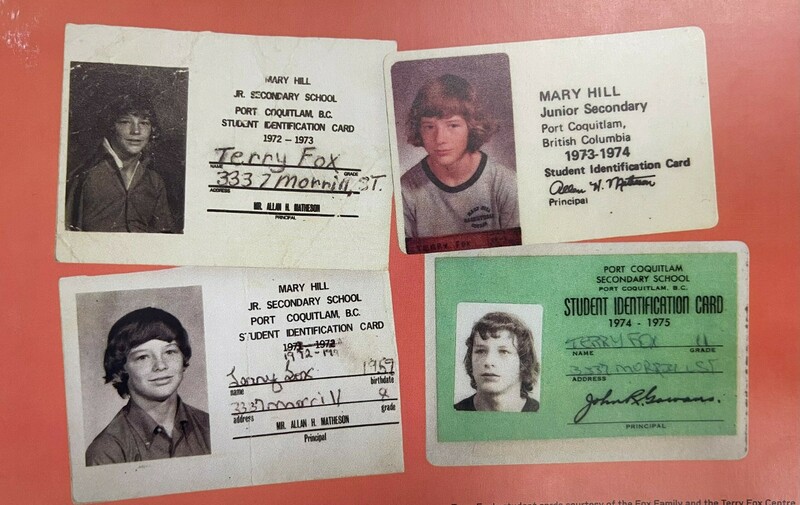 MARY HILL
JR. SECONDARY SCHOOL
PORT COQUITLAM, B.C.
STUDENT IDENTIFICATION CARD
1972 - 1973
Terry Fox
NAME GRADE
3337 Morrill, ST.
ADDRESS
MR. ALLAN H. MATHESON
PRINCIPAL
MARY HILL
Junior Secondary
Port Coquitlam,
British Columbia
1973-1974
Student Identification Card
Allan H. Matheson
Principal
MARY HILL
TERRY FOX
MARY HILL
JR. SECONDARY SCHOOL
PORT COQUITLAM, B.C.
STUDENT IDENTIFICATION CARD
Terry Fox
name birthdate
3337 Morrill 8
address grade
MR. ALLAN H. MATHESON
Principal
PORT COQUITLAM
SECONDARY SCHOOL
PORT COQUITLAM, B.C.
STUDENT IDENTIFICATION CARD
1974 - 1975
TERRY FOX 11
NAME GRADE
3337 MORRILL ST
ADDRESS
John R. Gowans.
PRINCIPAL
student cards courtesy of the Fox Family and the Terry Fox Centre